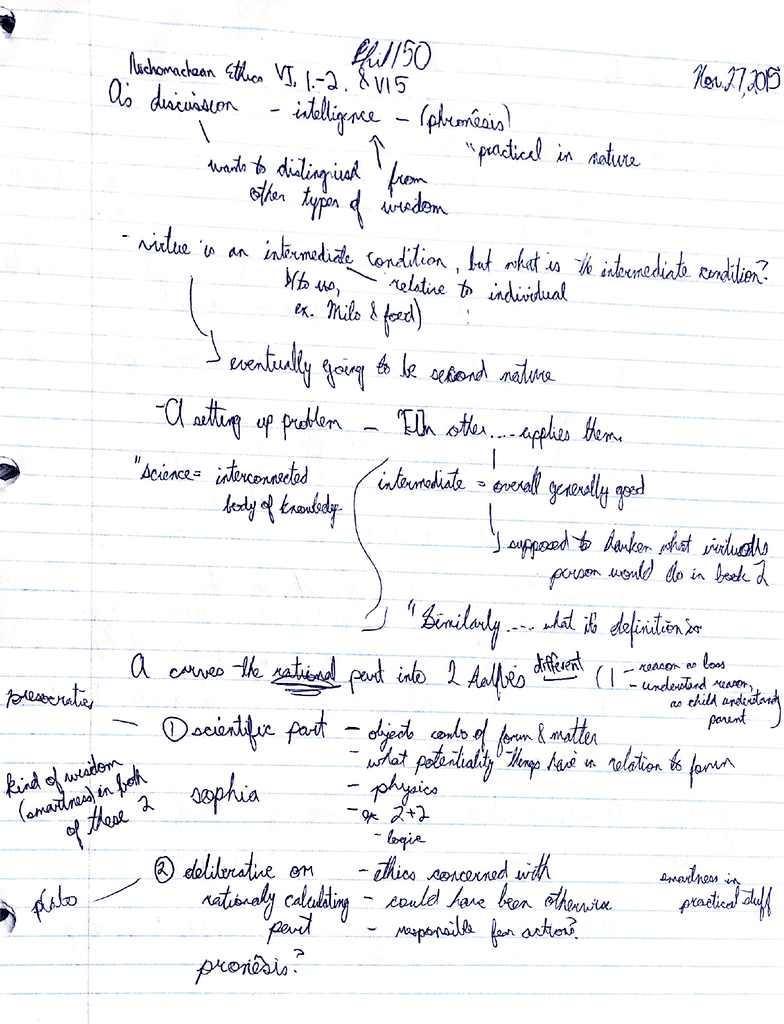 Phil 150
Nov. 27, 2015
Nichomachean Ethics VI, 1.-2. & VI 5
A's discussion - intelligence - (phronêsis)
"practical in nature
wants to distinguish from
other types of wisdom
- virtue is an intermediate condition, but what is the intermediate condition?
relative to individual
to us,
ex. Milo & food)
eventually going to be second nature
- A setting up problem - "[I]n other....applies them.
"science = interconnected
body of knowledge
intermediate = overall generally good
supposed to harken what virtuous
person would do in book 2
"Similarly .... what its definition is
A carves the rational part into 2 halfves different
(1 - reason as boss
- understand reason,
as child understands
parent
presocratics
① scientific part - objects combo of form & matter
- what potentiality things have in relation to form
kind of wisdom
(smartness) in both
of these 2
sophia
- physics
- ex 2+2
- logic
plato
② deliberative or
rationaly calculating
part
- ethics concerned with
- could have been otherwise
- responsible for action?
smartness in
practical stuff
pronêsis?